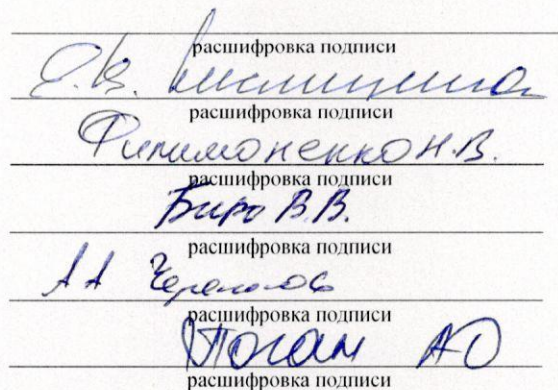 расшифровка подписи
Е.В.
расшифровка подписи
Филимоненко Н.В.
расшифровка подписи
Биро В.В.
расшифровка подписи
А А
расшифровка подписи
Поган АО
расшифровка подписи